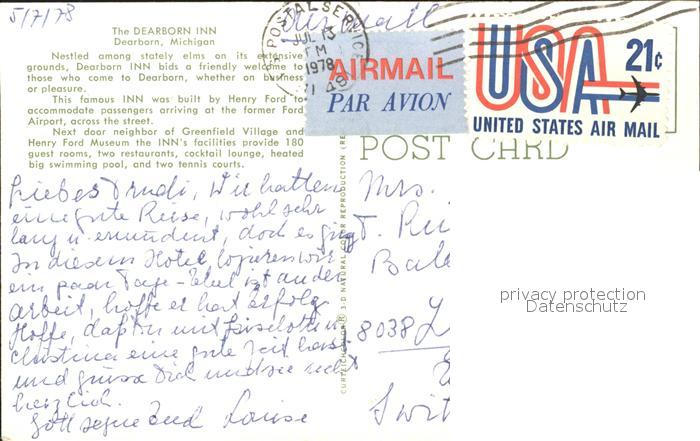 5/7/78
Airmail
The DEARBORN INN
Dearborn, Michigan
Nestled among stately elms on its extensive
grounds, Dearborn INN bids a friendly welcome to
those who come to Dearborn, whether on business
or pleasure.
This famous INN was built by Henry Ford to
accommodate passengers arriving at the former Ford
Airport, across the street.
Next door neighbor of Greenfield Village and
Henry Ford Museum the INN's facilities provide 180
guest rooms, two restaurants, cocktail lounge, heated
big swimming pool, and two tennis courts.
POSTAL SERVICE
JUL 13
1978
AIRMAIL
PAR AVION
USA 21¢
UNITED STATES AIR MAIL
POST CARD
Liebes Trudi, Wir hatten
eine gute Reise, wohl sehr
lang u. ermüdent, doch es ging
In diesem Hotel logieren wir
ein paar Tage - Edel ist an der
arbeit, hoffe er hat Erfolg
Hoffe, dass Du mit Liselotte u.
Christina eine gute Zeit hast
und grüsse Dich und sie recht
herzlich.
Gott segne Euch Louise
CURTEICHCOLOR® 3-D NATURAL COLOR REPRODUCTION (RE
Mrs.
T.
8038
Swit
privacy protection
Datenschutz